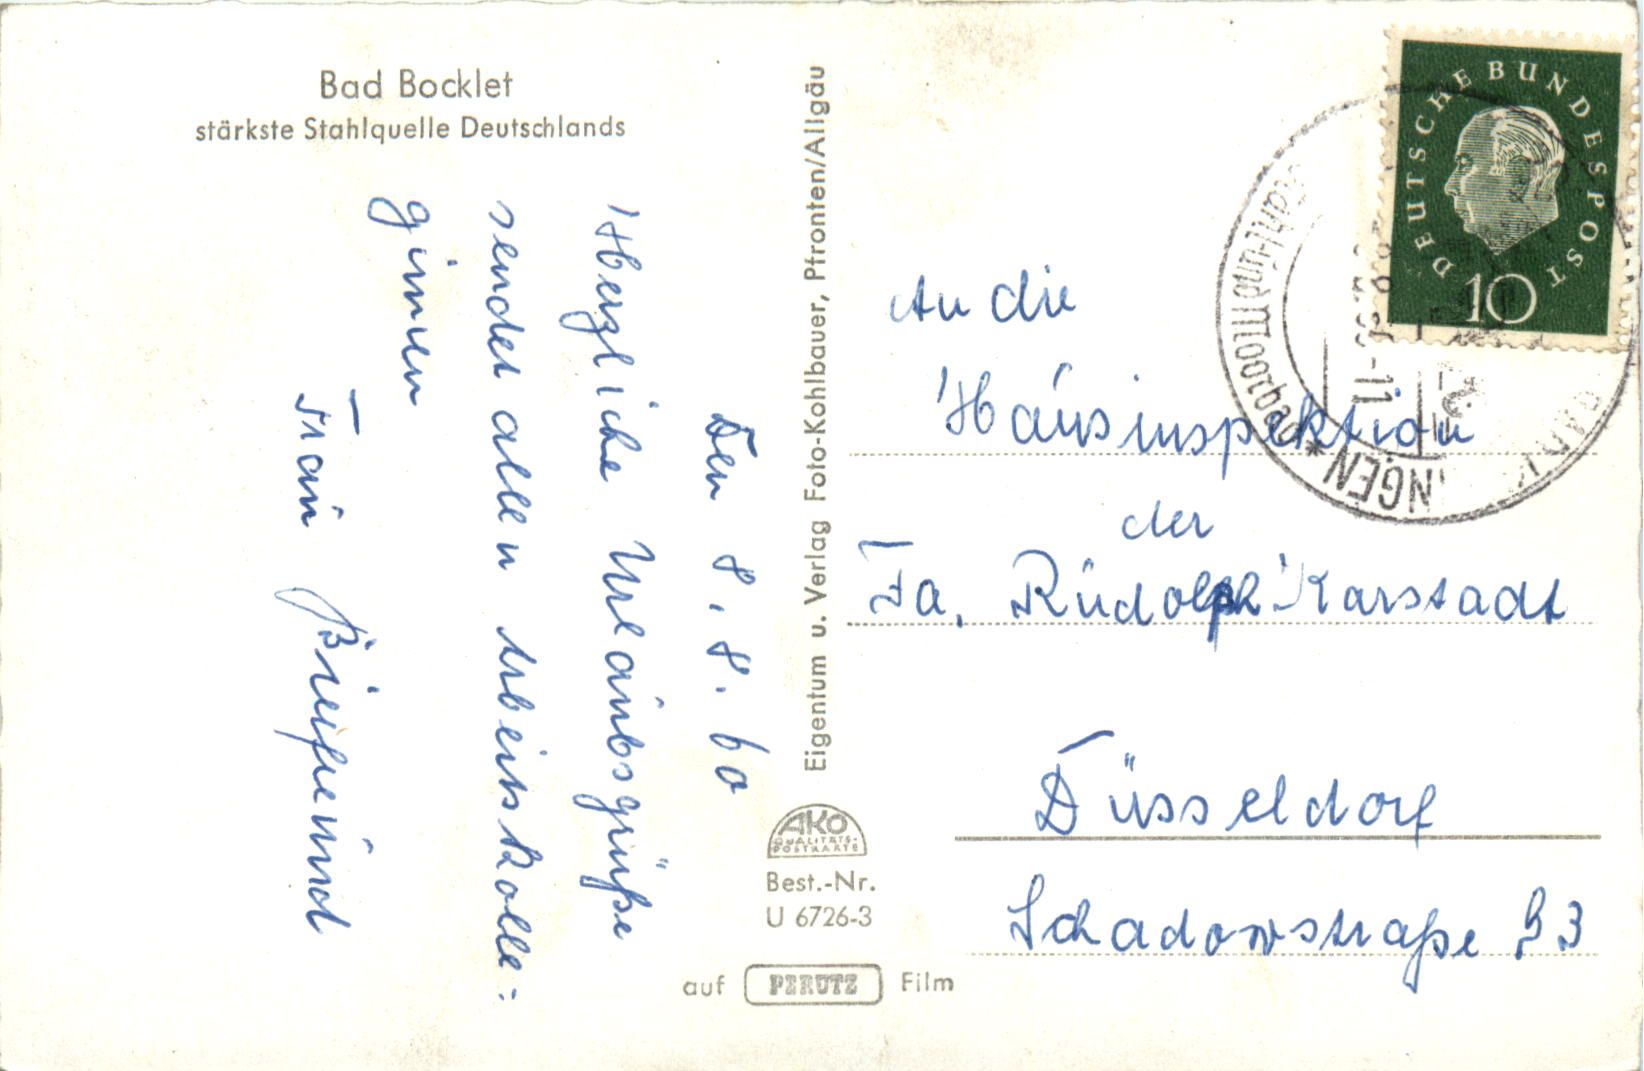 Bad Bocklet
stärkste Stahlquelle Deutschlands
Den 8. 8. 60
Herzliche Urlaubsgrüße
sendet allen Arbeitskolle:
ginnen
Frau
Eigentum u. Verlag Foto-Kohlbauer, Pfronten/Allgäu
AKO
QUALITÄTS-
POSTKARTE
Best.-Nr.
U 6726-3
auf PERUTZ Film
DEUTSCHE BUNDESPOST
10
-11
INGEN * Rad
An die
Hausinspektion
der
Fa. Rudolph Karstadt
Düsseldorf
Schadowstraße 93